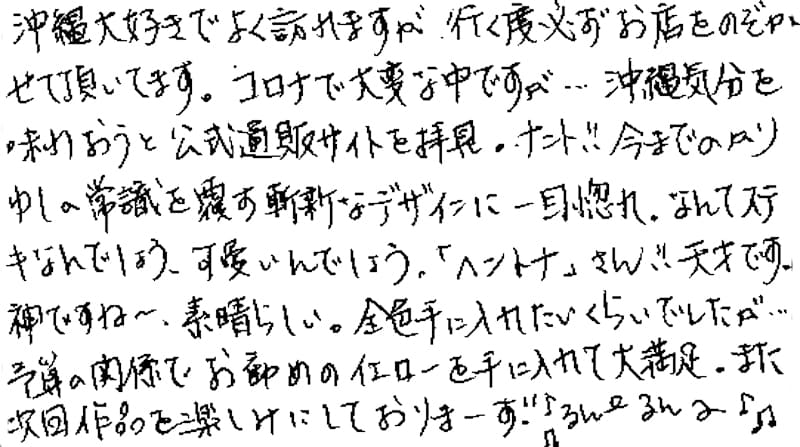 沖縄大好きでよく訪れますが、行く度必ずお店をのぞか
せて頂いてます。コロナで大変な中ですが…沖縄気分を
味わおうと公式通販サイトを拝見。ナント!!今までのかり
ゆしの常識を覆す斬新なデザインに一目惚れ。なんてステ
キなんでしょう、可愛いんでしょう。「ヘントナ」さん!!天才です。
神ですね〜、素晴らしい。全色手に入れたいくらいでしたが…
予算の関係でお勧めのイエローを手に入れて大満足。また
次回作品を楽しみにしておりまーす!!♪るん♪るん♪♫